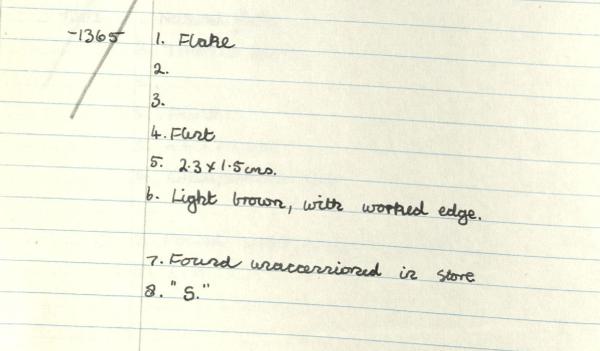 -1365 1. Flake
2.
3.
4. Flint
5. 2.3 x 1.5 cms.
6. Light brown, with worked edge.
7. Found unaccessioned in store
8. "S."